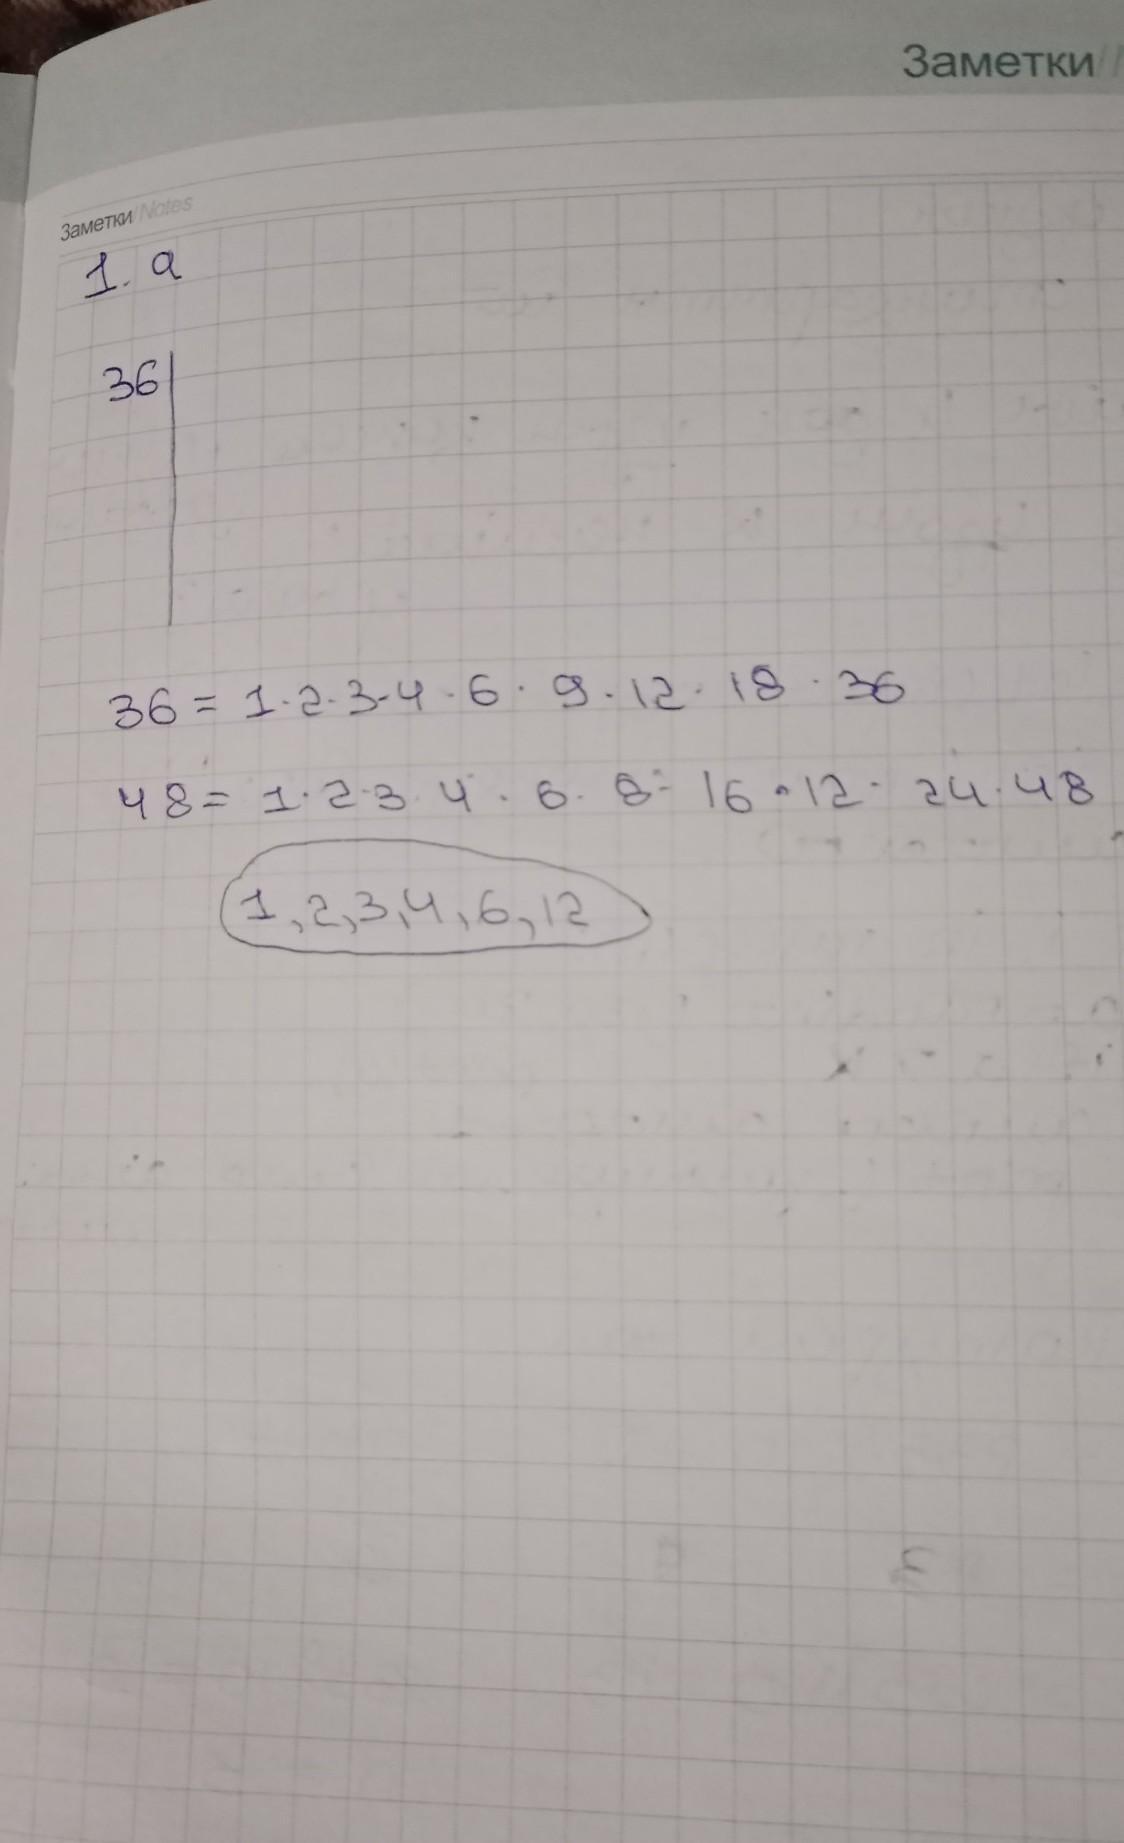 Заметки/
Заметки/Notes
1. а
36
36 = 1·2·3·4·6·9·12·18·36
48 = 1·2·3·4·6·8·16·12·24·48
1,2,3,4,6,12